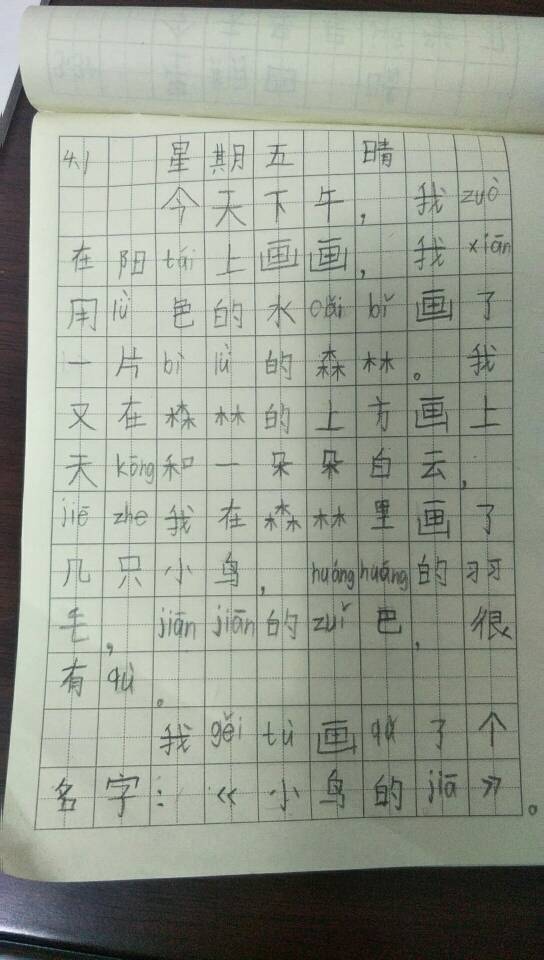 4.1 星期五 晴
今天下午，我zuò
在阳tái上画画，我xiān
用lǜ色的水cǎi bǐ画了
一片bì lǜ的森林。我
又在森林的上方画上
天kōng和一朵朵白云，
jiē zhe我在森林里画了
几只小鸟，huánghuáng的羽
毛，jiān jiān的zuǐ巴，很
有qù。
我gěi tú画qǔ了个
名字：《小鸟的jiā》。